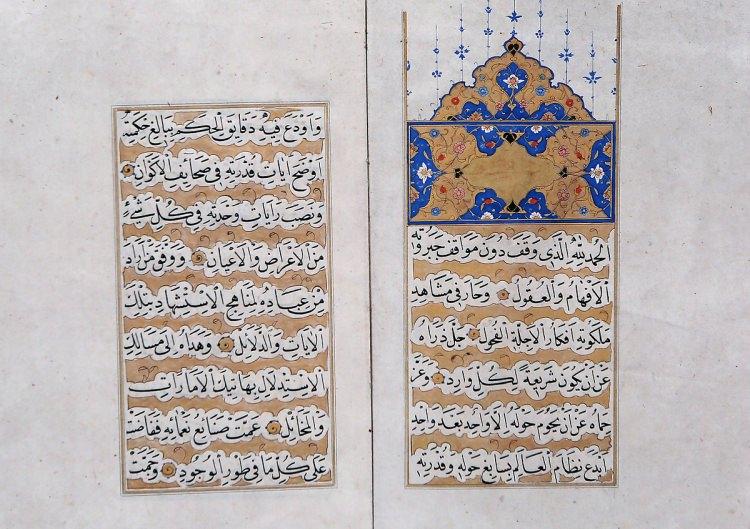 الحمد لله الذي وقف دون مواقف جبروته
الأفهام والعقول وحار في مشاهد
ملكوته أفكار الأجلة الفحول جل ذراه
عن أن يكون شريعة لكل وارد وعز
حماه عن أن يحوم حوله إلا واحد بعد واحد
أبدع نظام العالم بسابغ حوله وقدرته
وأودع فيه دقايق الحكم ببالغ حكمته
أوضح آيات قدرته في صحائف الأكوان
ونصب رايات وحدته في كل شيء
من الأعراض والأعيان ووفق من أراد
من عباده لمناهج الاستشهاد بتلك
الآيات والدلائل وهداه إلى مسالك
الاستدلال بهاتيك الأمارات
والمخائل عمت صنايع نعمائه ففاضت
على كل ما في طور الوجود وجمت